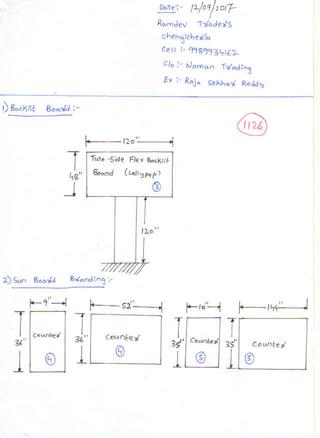 Date:- 12/09/2017
Ramdev Traders
chengicherla
Cell :- 9989934162
C/o :- Naman Trading
Ex :- Raja Sekhar Reddy
1) Backlit Board:-
1126
120"
48"
Two-Side Flex Backlit
Board (Lollypop)
3
120"
2) Sun Board Branding:-
9" 52" 10" 144"
36" Counter 36" Counter 35" Counter 35" Counter
4 4 5 5